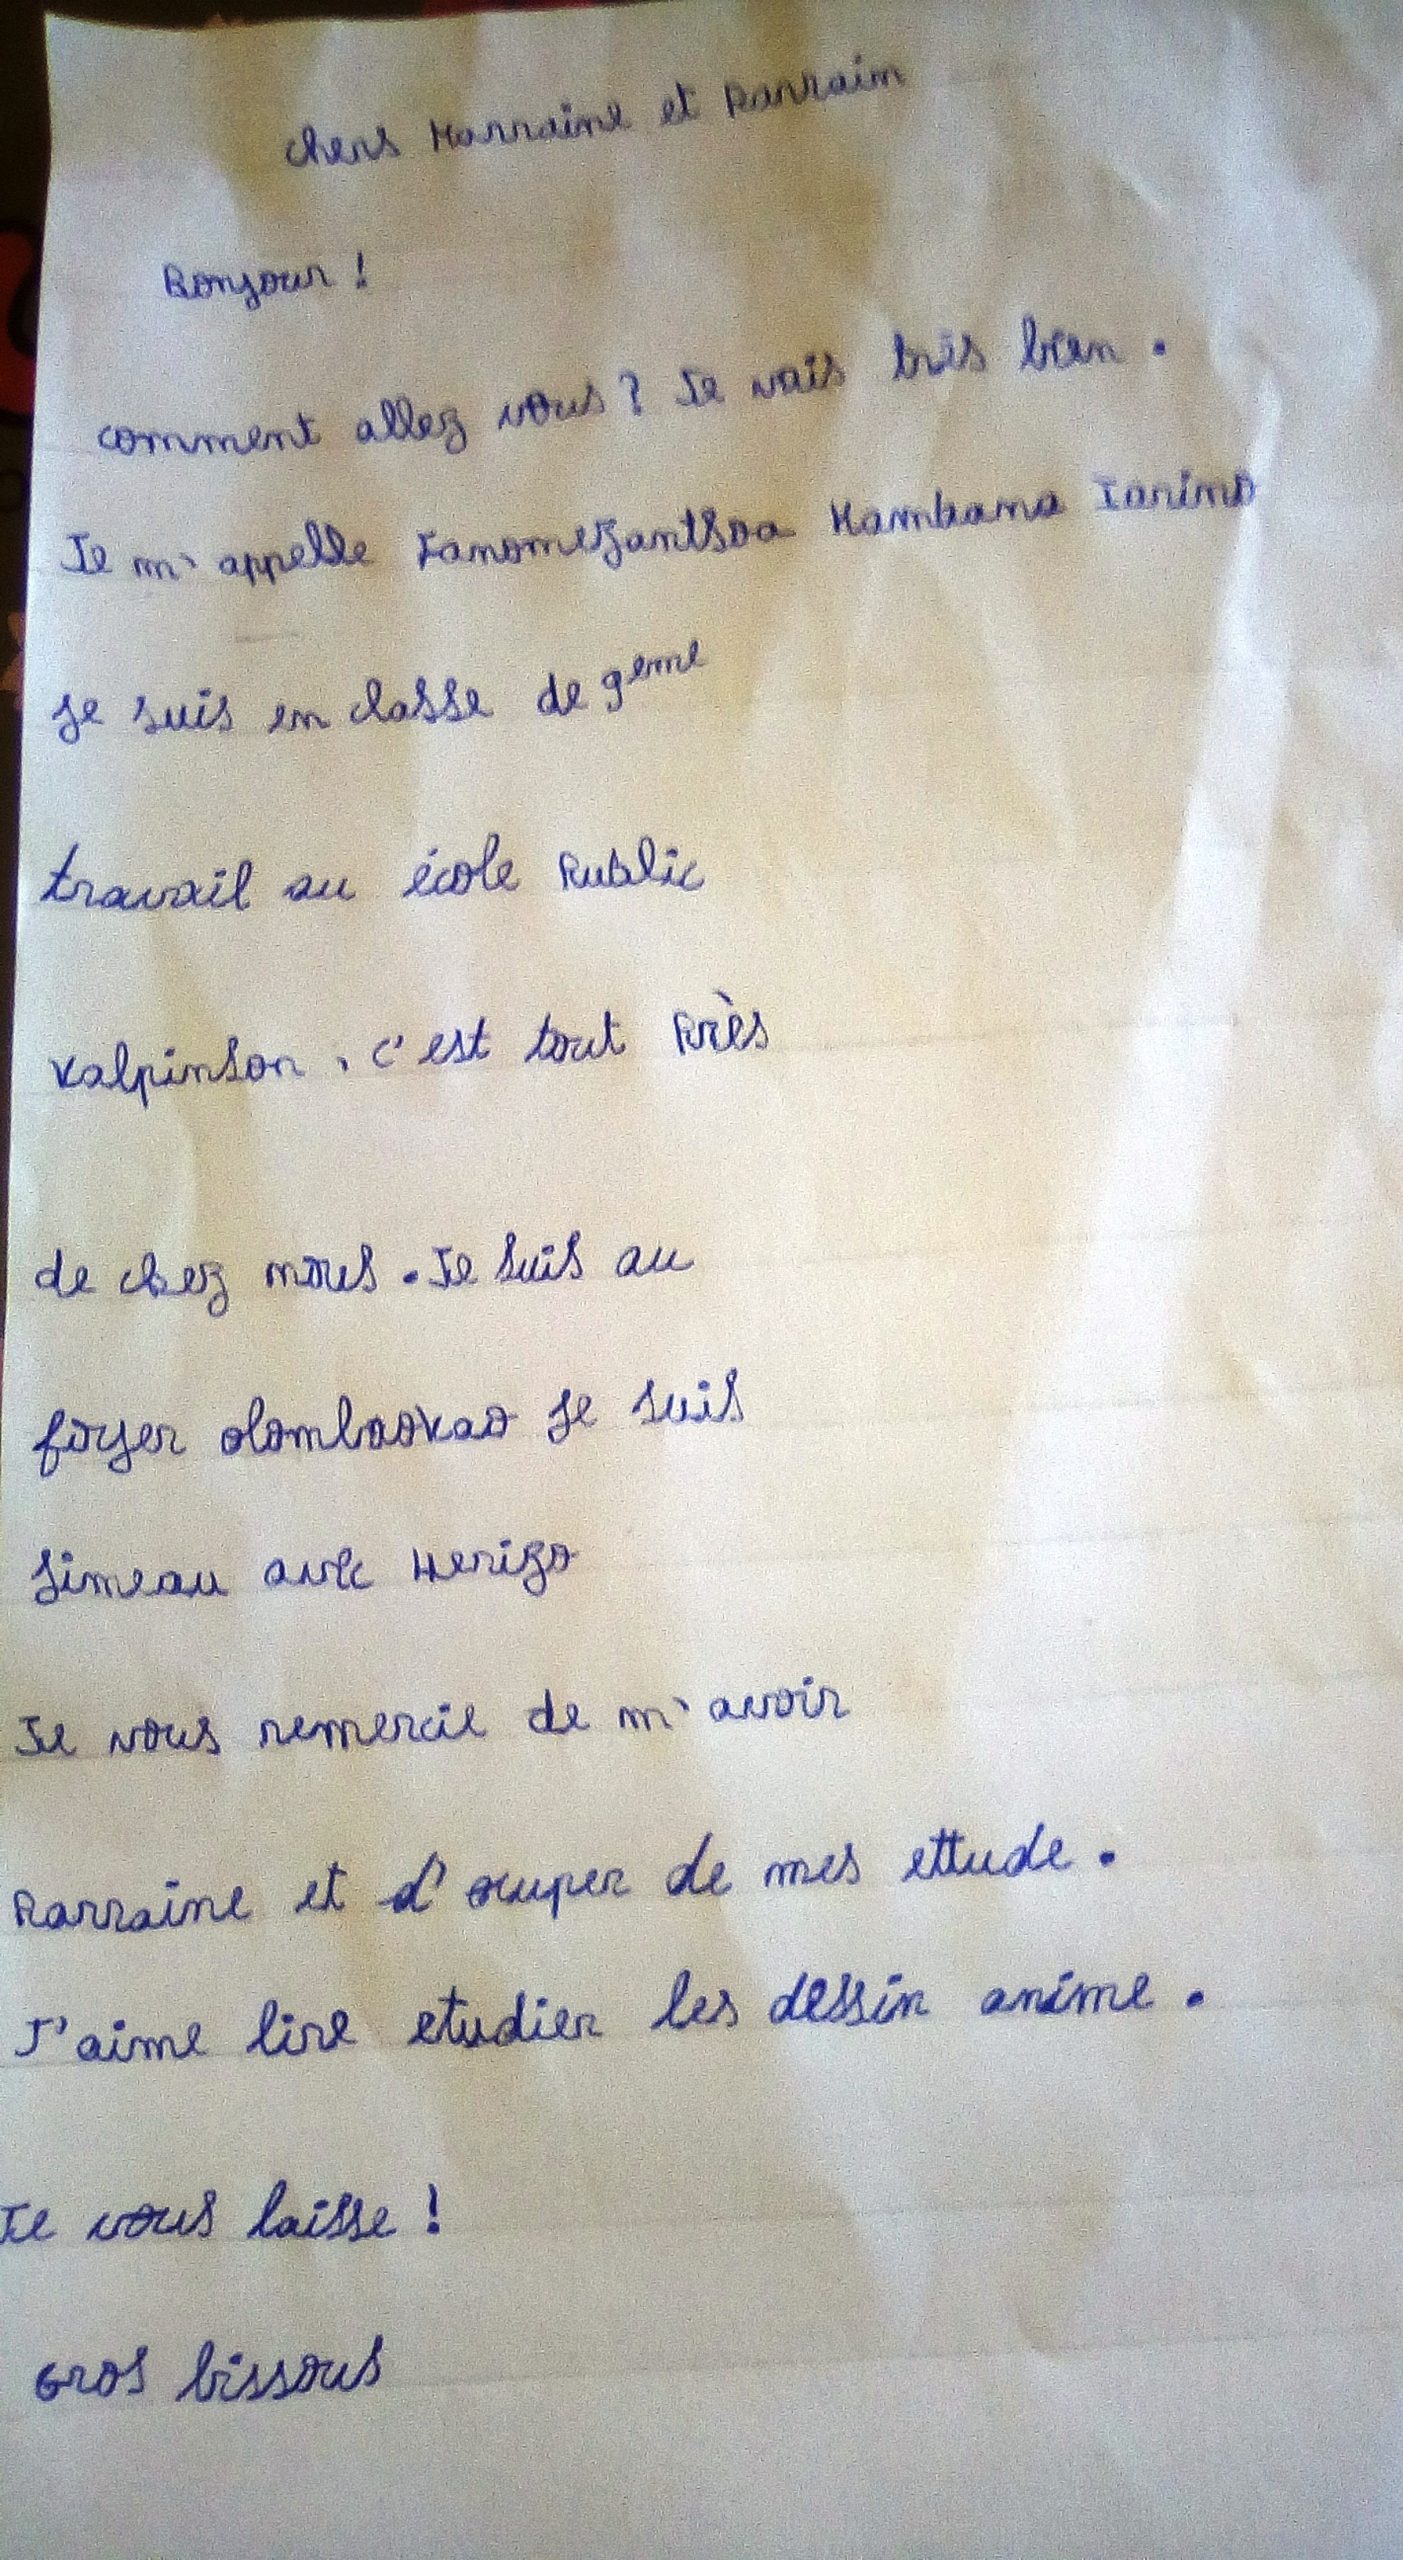 chers Marraine et Parrain
Bonjour !
comment allez vous ? Je vais très bien .
Je m'appelle Fanomezantsoa Mambana Iarimo
Je suis en classe de 9eme
travail au école Public
Valpinson . c'est tout Près
de chez nous . Je suis au
foyer olombaovao Je suis
Jimeau avec Herizo
Je vous remercie de m'avoir
Parraine et d'ocuper de mes ettude .
J'aime lire etudier les dessin anime .
Je vous laisse !
Gros bissous